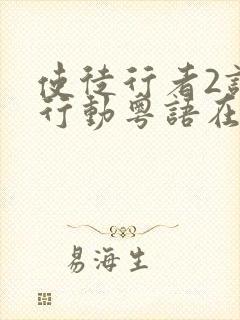 使徒行者2
行動粵語在
易海生